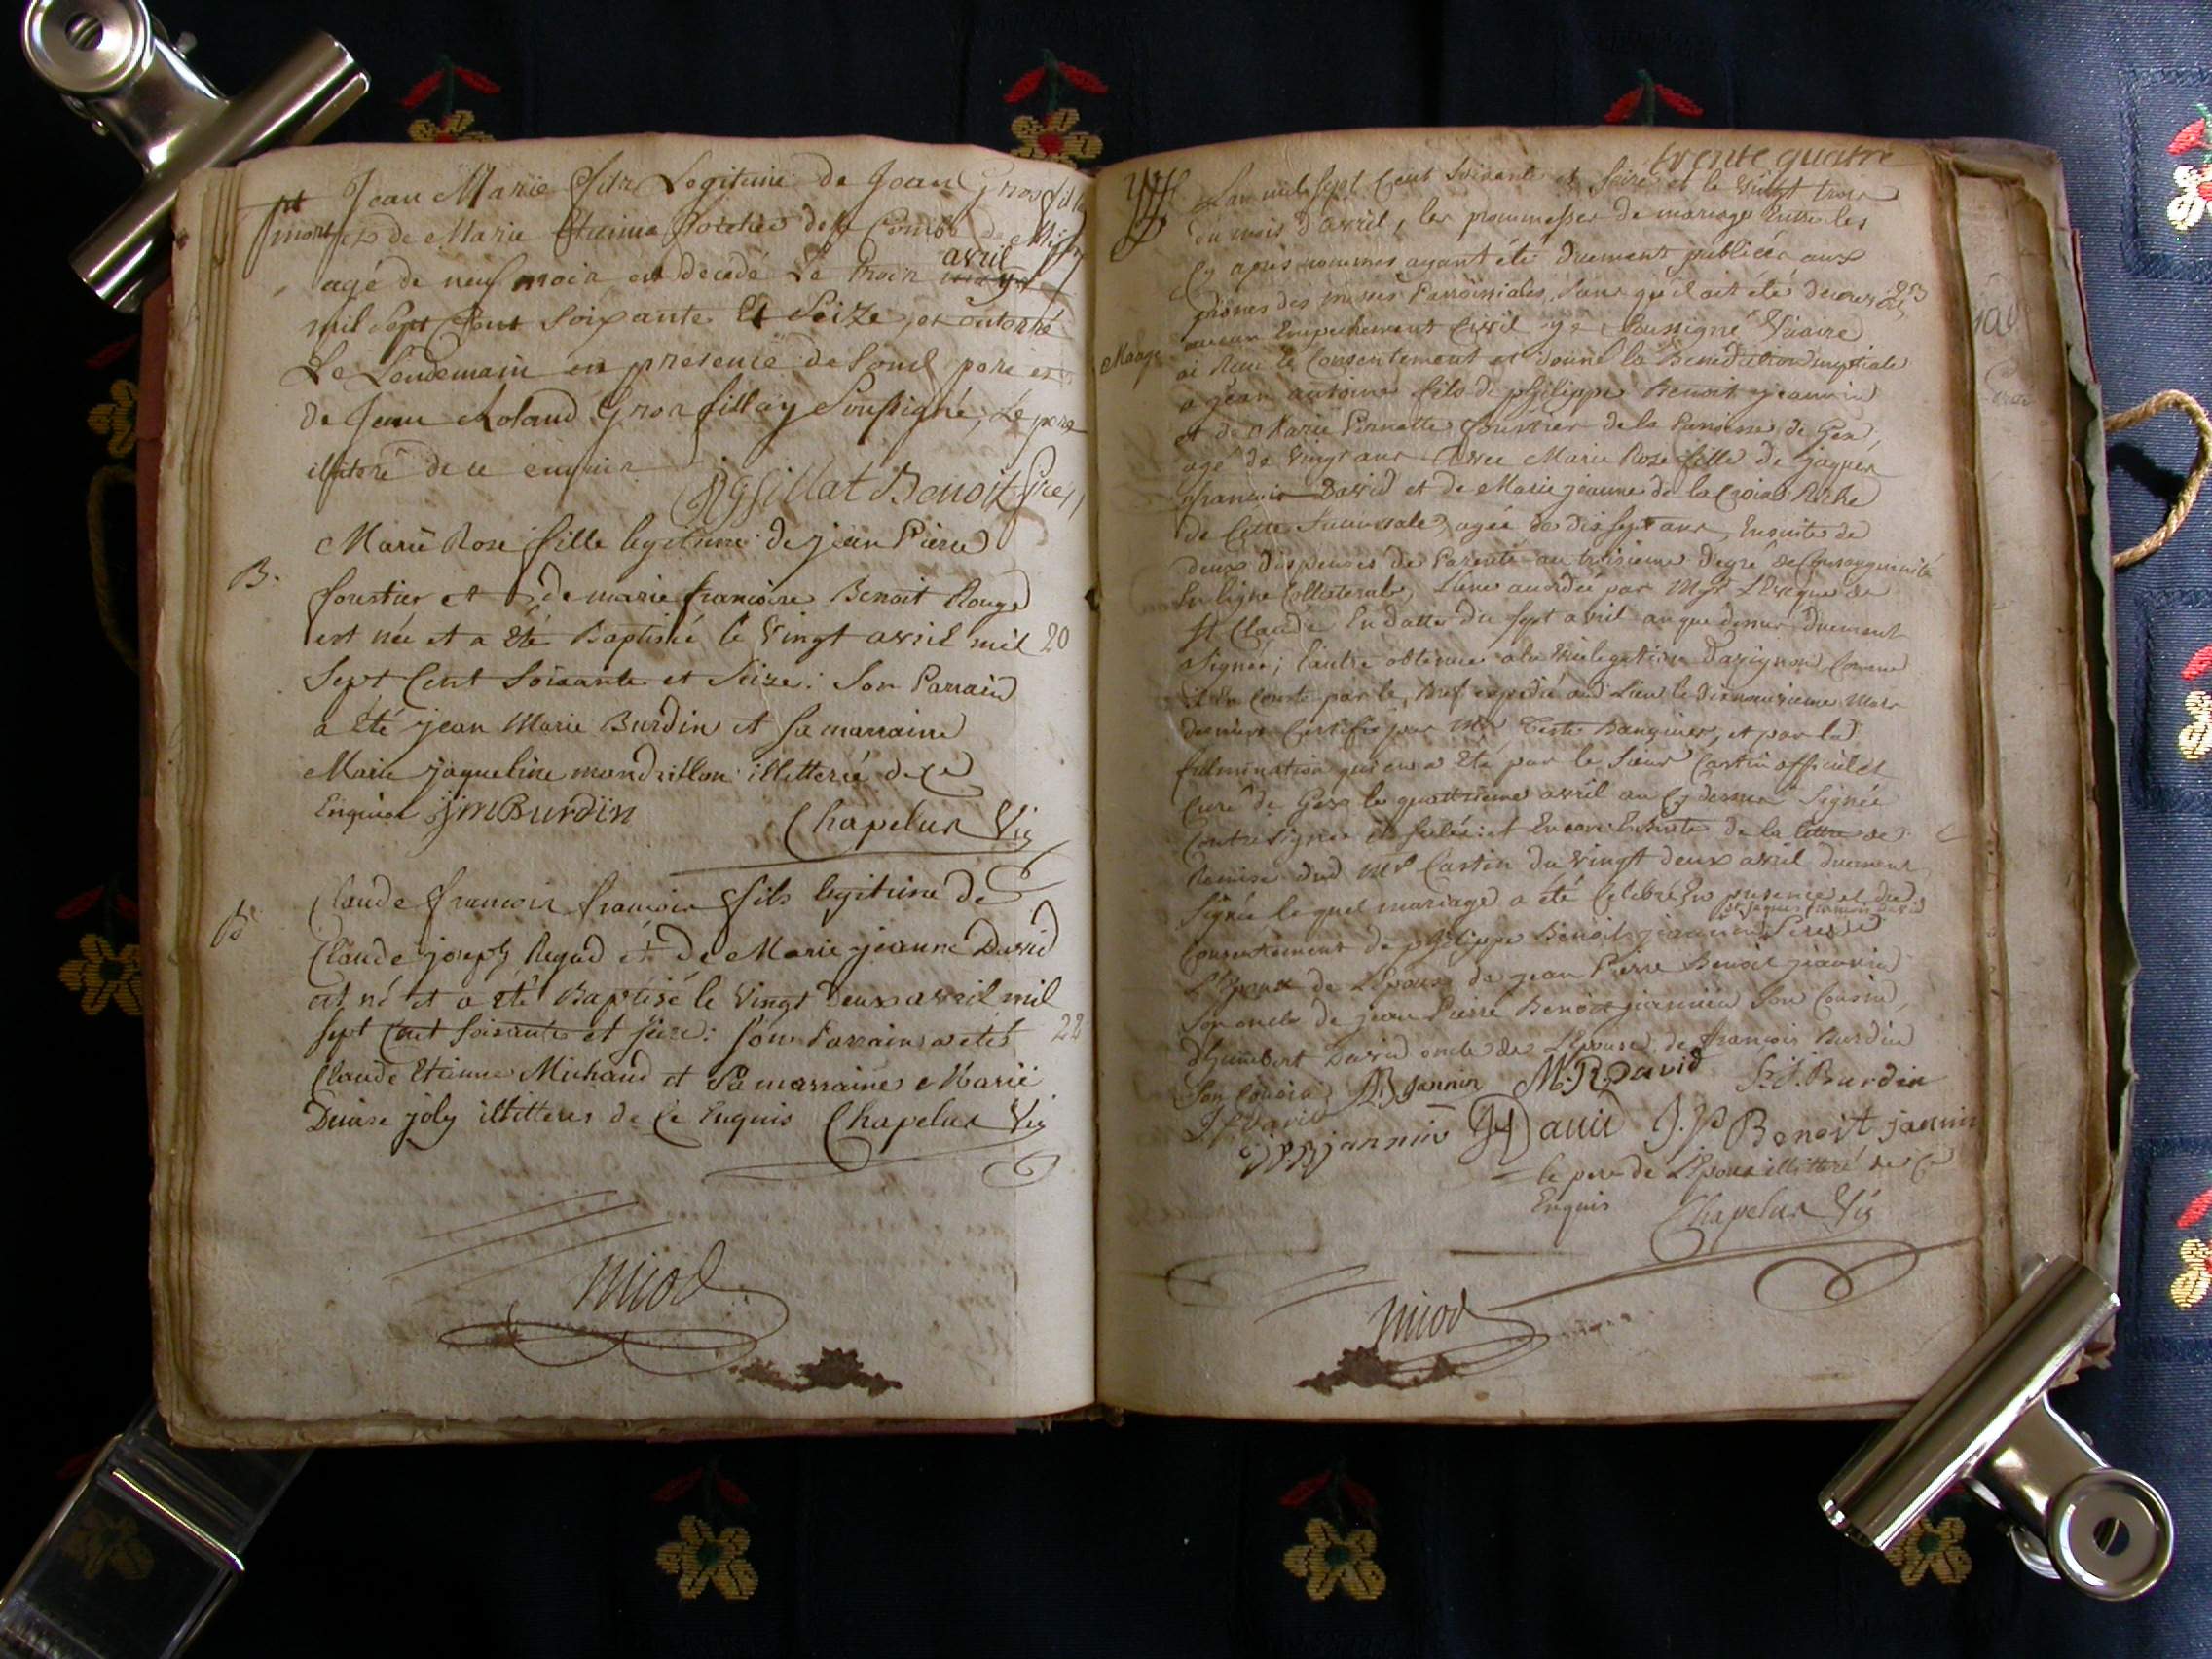 Jean Marie fils Legitime de Jean Grosfilla
mort et de Marie de la Combe de
agé de neuf mois est decedé Le trois avril
mil Sept Cent Soixante Et Seize, et enterré
Le Lendemain en presence de Soud pere et
de Jean Roland Grosfillay Soussigné, Le pere
illitere de ce enquis
Benoit
B. Marie Rose fille legitime de jean Piere
fourtier et de marie francoise Benoit Rouge
est née et a été Baptisée le Vingt avril mil 20
Sept Cent Soixante et Seize: Son Parrain
a été jean Marie Burdin et Sa marraine
Marie jaqueline mandrillon illitterée de ce
Enquise jmBurdin Chapelus Vic
B. Claude francois francois fils legitime de
Claude joseph Regad et de Marie jeanne David
est né et a été Baptisé le Vingt Deux avril mil
sept Cent Soixante et Seize: Son Parrain a étés 22
Claude Etienne Michaud et Sa marraine Marie
Denise joly illitteres de Ce Enquis Chapelus Vic
miod
trente quatre
L'an mil Sept Cent Soixante et Seize et le Vingt trois
du mois d'avril, les prommesses de mariage Entre les
Cy après nommes ayant été Duement publiées aux
prônes des messes Parroissiales, Sans qu'il ait été decouvert 23
aucun Empechement Civil je Soussigné Vicaire
Mariage ai Reçu le Consentement et donné la Benediction nuptiale
a jean antoine fils de philippe Benoit jeannin
et de Marie Pernette fourtier de la Paroisse de Gex,
agé de Vingt ans Avec Marie Rose fille de jaques
francois David et de Marie jeanne de la Croix Roche
de Cette Succursale, agée de dix sept ans, Ensuite de
deux dispenses de Parenté au troisieme degré de Consanguinité
En ligne Collaterale, L'une accordée par Mgr L'Eveque de
St Claude En datte du sept avril an que dessus duement
Signée; l'autre obtenue a la Vicelegation d'avignon Comme
il En Conste par le Bref expedié aud Lieu le dixneuvieme Mars
dernier Certifié par Mr Teste Banquier, et par la
fulmination qui en a été par le Sieur Castin official et
Curé de Gex le quattrieme avril an Cy dessus Signée
Contresignée et Scelée: et Encore Ensuite de la lettre de
Remise dud Mr Castin du Vingt deux avril duement
Signée lequel mariage a été Celebré En presence et du
et jaques francois David
Consentement de philippe Benoit jeannin Peres de
L'Epoux de L'Epouse de jean Pierre Benoit jeannin
Son oncle de jean Pierre Benoit jeannin Son Cousin,
d'humbert David oncle de L'Epouse, de francois Burdin
Son Cousin jannin M.R. David f.j. Burdin
jannin David J.P Benoit jannin
le pere de L'Epoux illitteré de Ce
Enquis Chapelus Vic
miod